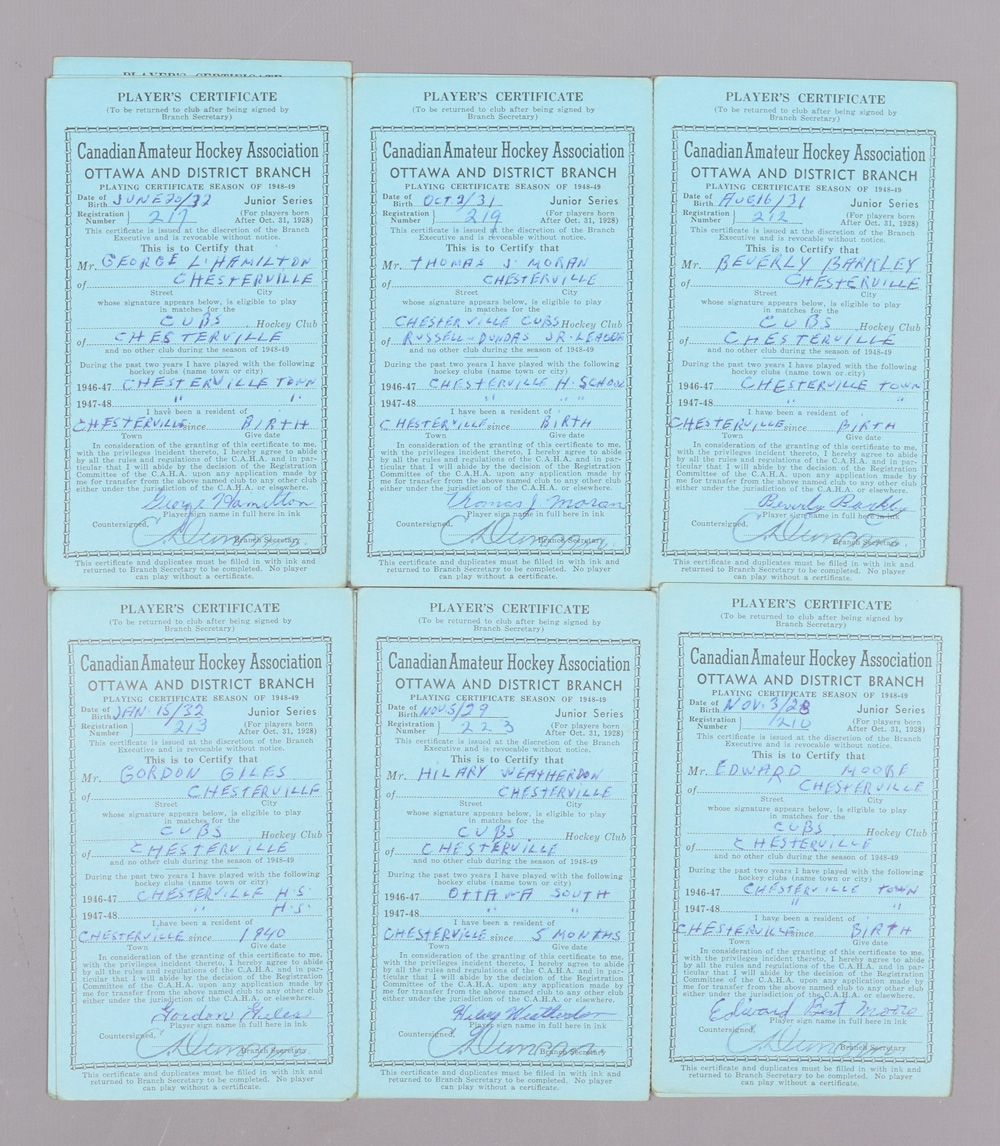 PLAYER'S CERTIFICATE
PLAYER'S CERTIFICATE
(To be returned to club after being signed by
Branch Secretary)
Canadian Amateur Hockey Association
OTTAWA AND DISTRICT BRANCH
PLAYING CERTIFICATE SEASON OF 1948-49
Date of Birth JUNE 20/32 Junior Series
Registration Number 217 (For players born After Oct. 31, 1928)
This certificate is issued at the discretion of the Branch
Executive and is revocable without notice.
This is to Certify that
Mr. GEORGE L. HAMILTON
of CHESTERVILLE
Street City
whose signature appears below, is eligible to play
in matches for the
CUBS Hockey Club
of CHESTERVILLE
and no other club during the season of 1948-49
During the past two years I have played with the following
hockey clubs (name town or city)
1946-47 CHESTERVILLE TOWN
1947-48 " "
I have been a resident of
CHESTERVILLE since BIRTH
Town Give date
In consideration of the granting of this certificate to me,
with the privileges incident thereto, I hereby agree to abide
by all the rules and regulations of the C.A.H.A. and in par-
ticular that I will abide by the decision of the Registration
Committee of the C.A.H.A. upon any application made by
me for transfer from the above named club to any other club
either under the jurisdiction of the C.A.H.A. or elsewhere.
George Hamilton
Player sign name in full here in ink
Countersigned,
Branch Secretary.
This certificate and duplicates must be filled in with ink and
returned to Branch Secretary to be completed. No player
can play without a certificate.
PLAYER'S CERTIFICATE
(To be returned to club after being signed by
Branch Secretary)
Canadian Amateur Hockey Association
OTTAWA AND DISTRICT BRANCH
PLAYING CERTIFICATE SEASON OF 1948-49
Date of Birth OCT 2/31 Junior Series
Registration Number 219 (For players born After Oct. 31, 1928)
This certificate is issued at the discretion of the Branch
Executive and is revocable without notice.
This is to Certify that
Mr. THOMAS J. MORAN
of CHESTERVILLE
Street City
whose signature appears below, is eligible to play
in matches for the
CHESTERVILLE CUBS Hockey Club
of RUSSELL-DUNDAS JR. LEAGUE
and no other club during the season of 1948-49
During the past two years I have played with the following
hockey clubs (name town or city)
1946-47 CHESTERVILLE H. SCHOOL
1947-48 " " "
I have been a resident of
CHESTERVILLE since BIRTH
Town Give date
In consideration of the granting of this certificate to me,
with the privileges incident thereto, I hereby agree to abide
by all the rules and regulations of the C.A.H.A. and in par-
ticular that I will abide by the decision of the Registration
Committee of the C.A.H.A. upon any application made by
me for transfer from the above named club to any other club
either under the jurisdiction of the C.A.H.A. or elsewhere.
Thomas J Moran
Player sign name in full here in ink
Countersigned,
Branch Secretary
This certificate and duplicates must be filled in with ink and
returned to Branch Secretary to be completed. No player
can play without a certificate.
PLAYER'S CERTIFICATE
(To be returned to club after being signed by
Branch Secretary)
Canadian Amateur Hockey Association
OTTAWA AND DISTRICT BRANCH
PLAYING CERTIFICATE SEASON OF 1948-49
Date of Birth AUG 16/31 Junior Series
Registration Number 212 (For players born After Oct. 31, 1928)
This certificate is issued at the discretion of the Branch
Executive and is revocable without notice.
This is to Certify that
Mr. BEVERLY BARKLEY
of CHESTERVILLE
Street City
whose signature appears below, is eligible to play
in matches for the
CUBS Hockey Club
of CHESTERVILLE
and no other club during the season of 1948-49
During the past two years I have played with the following
hockey clubs (name town or city)
1946-47 CHESTERVILLE TOWN
1947-48 " "
I have been a resident of
CHESTERVILLE since BIRTH
Town Give date
In consideration of the granting of this certificate to me,
with the privileges incident thereto, I hereby agree to abide
by all the rules and regulations of the C.A.H.A. and in par-
ticular that I will abide by the decision of the Registration
Committee of the C.A.H.A. upon any application made by
me for transfer from the above named club to any other club
either under the jurisdiction of the C.A.H.A. or elsewhere.
Beverly Barkley
Player sign name in full here in ink
Countersigned,
Branch Secretary
This certificate and duplicates must be filled in with ink and
returned to Branch Secretary to be completed. No player
can play without a certificate.
PLAYER'S CERTIFICATE
(To be returned to club after being signed by
Branch Secretary)
Canadian Amateur Hockey Association
OTTAWA AND DISTRICT BRANCH
PLAYING CERTIFICATE SEASON OF 1948-49
Date of Birth JAN. 15/32 Junior Series
Registration Number 213 (For players born After Oct. 31, 1928)
This certificate is issued at the discretion of the Branch
Executive and is revocable without notice.
This is to Certify that
Mr. GORDON GILES
of CHESTERVILLE
Street City
whose signature appears below, is eligible to play
in matches for the
CUBS Hockey Club
of CHESTERVILLE
and no other club during the season of 1948-49
During the past two years I have played with the following
hockey clubs (name town or city)
1946-47 CHESTERVILLE H.S.
1947-48 " H.S.
I have been a resident of
CHESTERVILLE since 1940
Town Give date
In consideration of the granting of this certificate to me,
with the privileges incident thereto, I hereby agree to abide
by all the rules and regulations of the C.A.H.A. and in par-
ticular that I will abide by the decision of the Registration
Committee of the C.A.H.A. upon any application made by
me for transfer from the above named club to any other club
either under the jurisdiction of the C.A.H.A. or elsewhere.
Gordon Giles
Player sign name in full here in ink
Countersigned,
Branch Secretary
This certificate and duplicates must be filled in with ink and
returned to Branch Secretary to be completed. No player
can play without a certificate.
PLAYER'S CERTIFICATE
(To be returned to club after being signed by
Branch Secretary)
Canadian Amateur Hockey Association
OTTAWA AND DISTRICT BRANCH
PLAYING CERTIFICATE SEASON OF 1948-49
Date of Birth NOV 5/29 Junior Series
Registration Number 223 (For players born After Oct. 31, 1928)
This certificate is issued at the discretion of the Branch
Executive and is revocable without notice.
This is to Certify that
Mr. HILARY WEATHERDON
of CHESTERVILLE
Street City
whose signature appears below, is eligible to play
in matches for the
CUBS Hockey Club
of CHESTERVILLE
and no other club during the season of 1948-49
During the past two years I have played with the following
hockey clubs (name town or city)
1946-47 OTTAWA SOUTH
1947-48 " "
I have been a resident of
CHESTERVILLE since 5 MONTHS
Town Give date
In consideration of the granting of this certificate to me,
with the privileges incident thereto, I hereby agree to abide
by all the rules and regulations of the C.A.H.A. and in par-
ticular that I will abide by the decision of the Registration
Committee of the C.A.H.A. upon any application made by
me for transfer from the above named club to any other club
either under the jurisdiction of the C.A.H.A. or elsewhere.
Hilary Weatherdon
Player sign name in full here in ink
Countersigned,
Branch Secretary
This certificate and duplicates must be filled in with ink and
returned to Branch Secretary to be completed. No player
can play without a certificate.
PLAYER'S CERTIFICATE
(To be returned to club after being signed by
Branch Secretary)
Canadian Amateur Hockey Association
OTTAWA AND DISTRICT BRANCH
PLAYING CERTIFICATE SEASON OF 1948-49
Date of Birth NOV. 3/28 Junior Series
Registration Number 210 (For players born After Oct. 31, 1928)
This certificate is issued at the discretion of the Branch
Executive and is revocable without notice.
This is to Certify that
Mr. EDWARD MOORE
of CHESTERVILLE
Street City
whose signature appears below, is eligible to play
in matches for the
CUBS Hockey Club
of CHESTERVILLE
and no other club during the season of 1948-49
During the past two years I have played with the following
hockey clubs (name town or city)
1946-47 CHESTERVILLE TOWN
1947-48 " "
I have been a resident of
CHESTERVILLE since BIRTH
Town Give date
In consideration of the granting of this certificate to me,
with the privileges incident thereto, I hereby agree to abide
by all the rules and regulations of the C.A.H.A. and in par-
ticular that I will abide by the decision of the Registration
Committee of the C.A.H.A. upon any application made by
me for transfer from the above named club to any other club
either under the jurisdiction of the C.A.H.A. or elsewhere.
Edward Bert Moore
Player sign name in full here in ink
Countersigned,
Branch Secretary
This certificate and duplicates must be filled in with ink and
returned to Branch Secretary to be completed. No player
can play without a certificate.